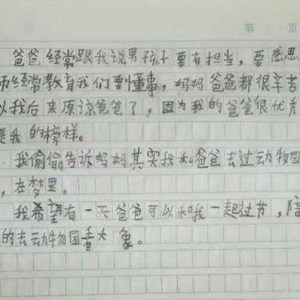 第 页
爸爸经常跟我说男孩子要有担当,要感恩
师经常教育我们要懂事,妈妈爸爸都很辛苦
以我后来原谅爸爸了,因为我的爸爸很优秀
是我的榜样。
我偷偷告诉妈妈其实我和爸爸去过动物园
,在梦里。
我希望有一天爸爸可以和我一起过节,陪
的去动物园看大象。